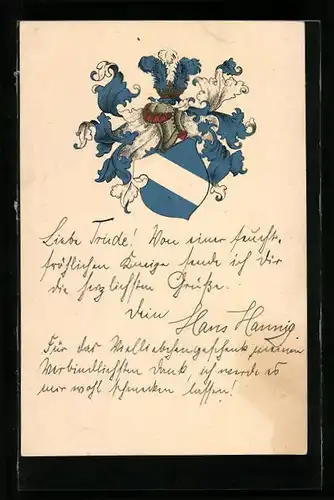 Liebe Trude! Von einer feucht-
fröhlichen Kneipe sende ich Dir
die herzlichsten Grüße.
Dein Hans Hannig
Für das Vielliebchengeschenk meinen
Verbindlichsten Dank ich werde es
mir wohl schmecken lassen!